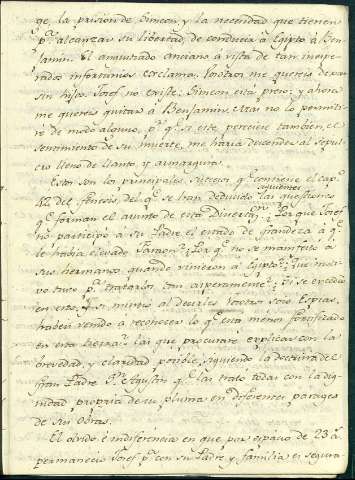 ge, la prision de Simeon, y la necesidad que tienen
p.ª alcanzar su libertad, de conducir à Egipto à Ben
jamin. El angustiado anciano à vista de tan inespe
rados infortunios exclama: Vosotros me quereis dexar
sin hijos. Josef no existe: Simeon está preso: y ahora
me quereis quitar à Benjamin. Mas no lo permiti
ré de modo alguno, p.r q.e si este perecierse tambien, el
sentimiento de su muerte, me haria descender al sepul
cro lleno de llanto, y amargura.
Estos son los principales sucesos q.e contiene el cap.º
42 del Genesis, del q.e se han deducido las siguientes questiones
q.e forman el asunto de esta Disertac.on ¿Por que Josef
no participó a su Padre el estado de grandeza à q.e
le habia elevado Faraon? ¿Por q.e no se manifestó a
sus hermanos quando vinieron à Egipto? ¿Que moti
vo tuvo p.ª tratarlos tan asperamente? ¿Si se excedio
en esto, y si mintio al decirles Vosotros sois Espias,
habeis venido a reconocer lo q.e está menos fortificado
en esta tierra? las que procuraré explicar con la
brevedad, y claridad posible, siguiendo la doctrina del
Gran Padre S.n Agustin q.e las trató todas con la dig
nidad propria de su pluma en diferentes parages
de sus obras.
El olvido è indiferencia en que por espacio de 23 a.s
permaneció Josef p.a con su Padre y familia es segura